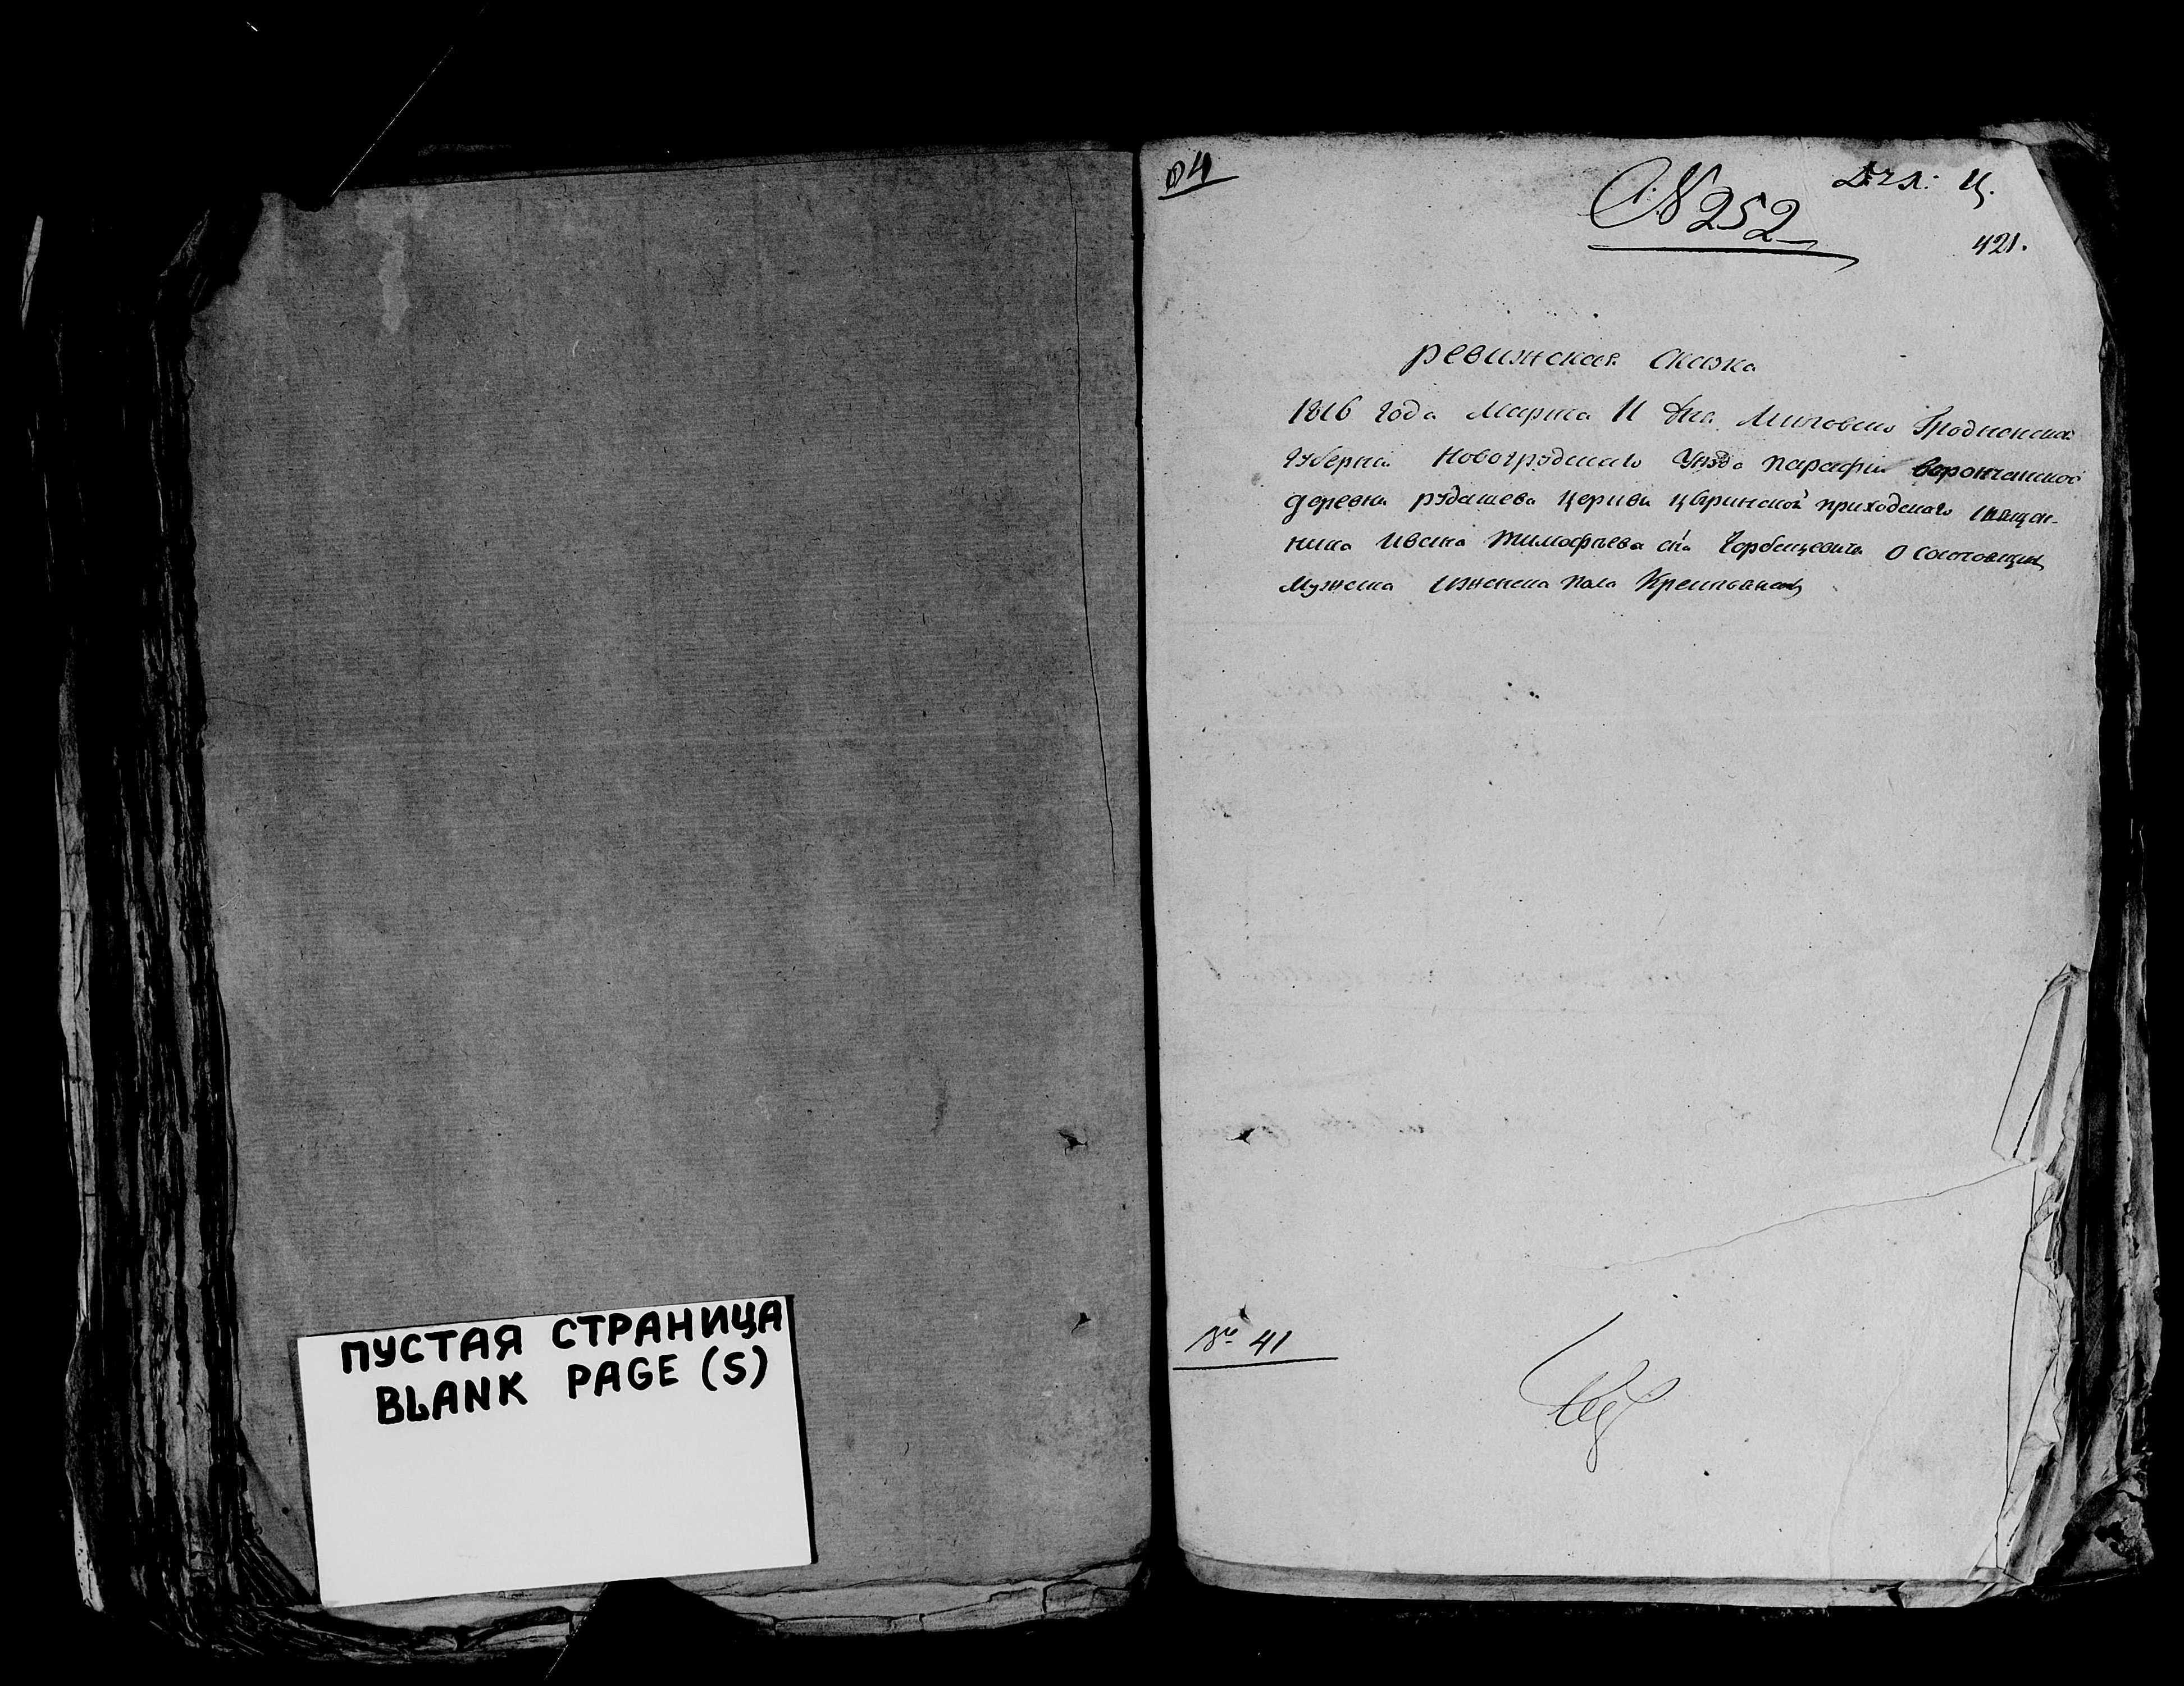 ПУСТАЯ СТРАНИЦА
BLANK PAGE (S)
84
№ 252
421.
ревижская сказка
1816 года Марта 11 дня Литовско Гродненска
Губернiи Новогрудскаго Уезда парафiи Ворончанской
деревни рудашева Церкви Цыринской приходскаго Свяще-
ника Ивана Тимофѣева сна Горбацевича о состоящих
Мужска и женска пола Крестьянах
№ 41